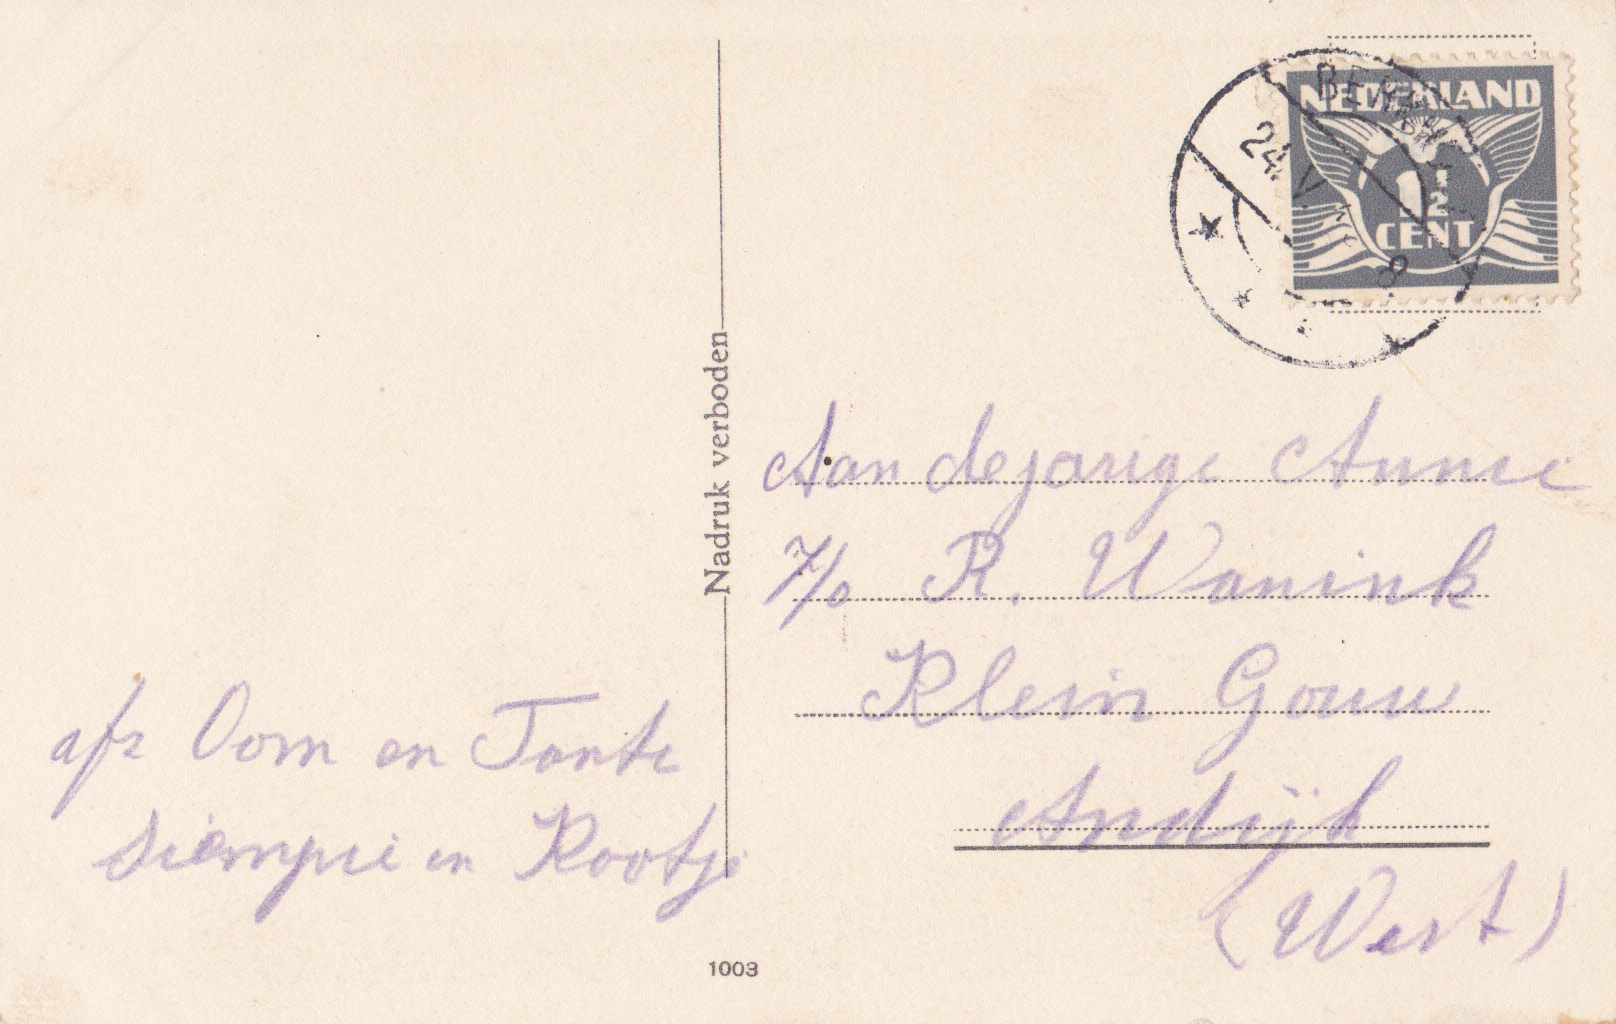 NEDERLAND
1½
CENT
24 V
8
Nadruk verboden
Aan de jarige Annie
p/o R. Wanink
Klein Gouw
Andijk
(West)
afz Oom en Tante
Siempie en Kootje
1003